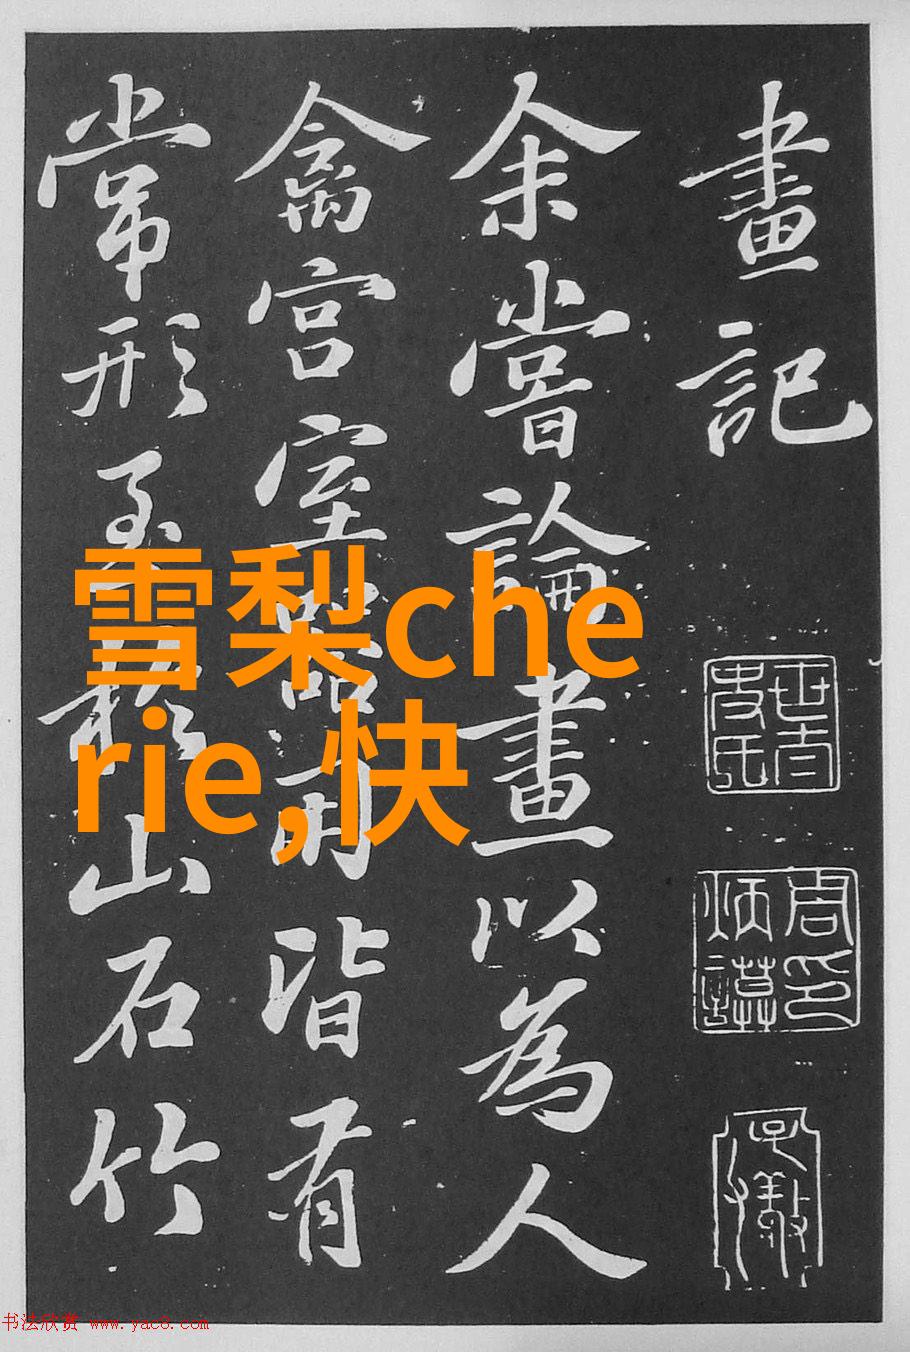 畫記
周印炳謨
余嘗論畫以為人
禽宮室器用皆有
常形至於山石竹
雪梨che
rie,快
书法欣赏 www.yac8.com